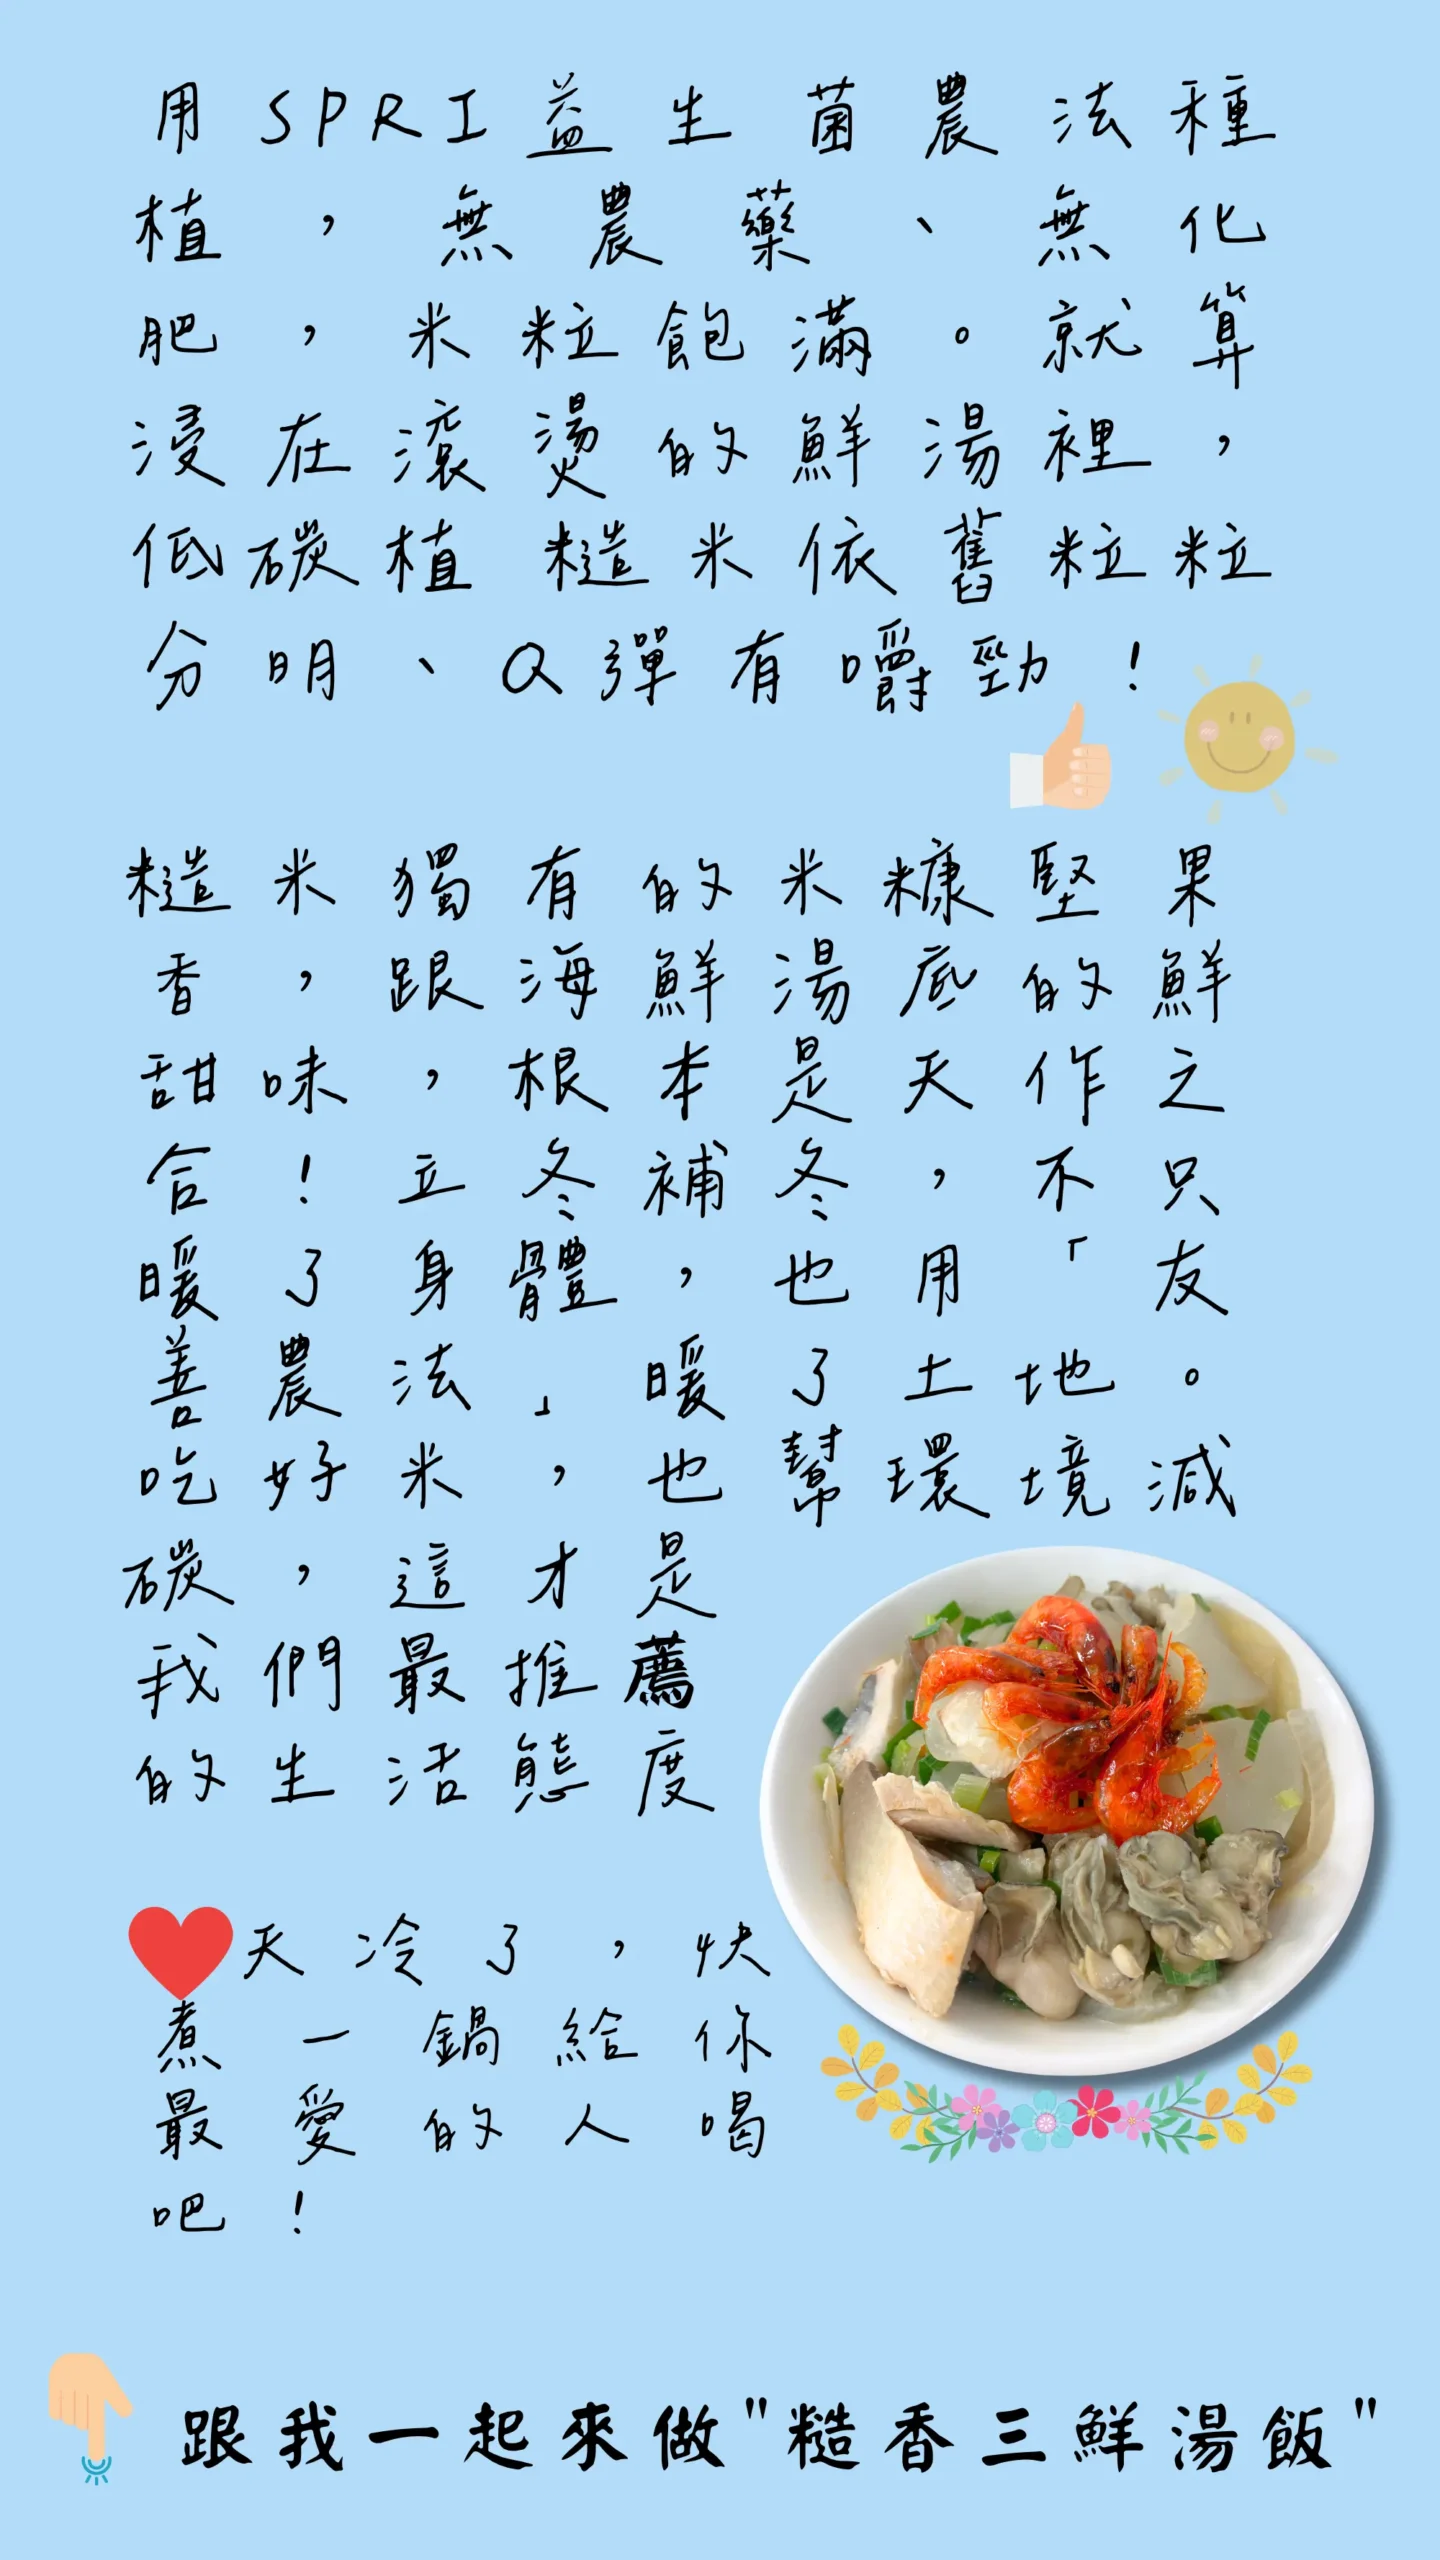 用SPRI益生菌農法種
植，無農藥、無化
肥，米粒飽滿。就算
浸在滾燙的鮮湯裡，
低碳植 糙米依舊粒粒
分明、Q彈有嚼勁！
糙米獨有的米糠堅果
香，跟海鮮湯底的鮮
甜味，根本是天作之
合！立冬補冬，不只
暖了身體，也用「友
善農法」暖了土地。
吃好米，也幫環境減
碳，這才是
我們最推薦
的生活態度
天冷了，快
煮一鍋給你
最愛的人喝
吧！
跟我一起來做"糙香三鮮湯飯"